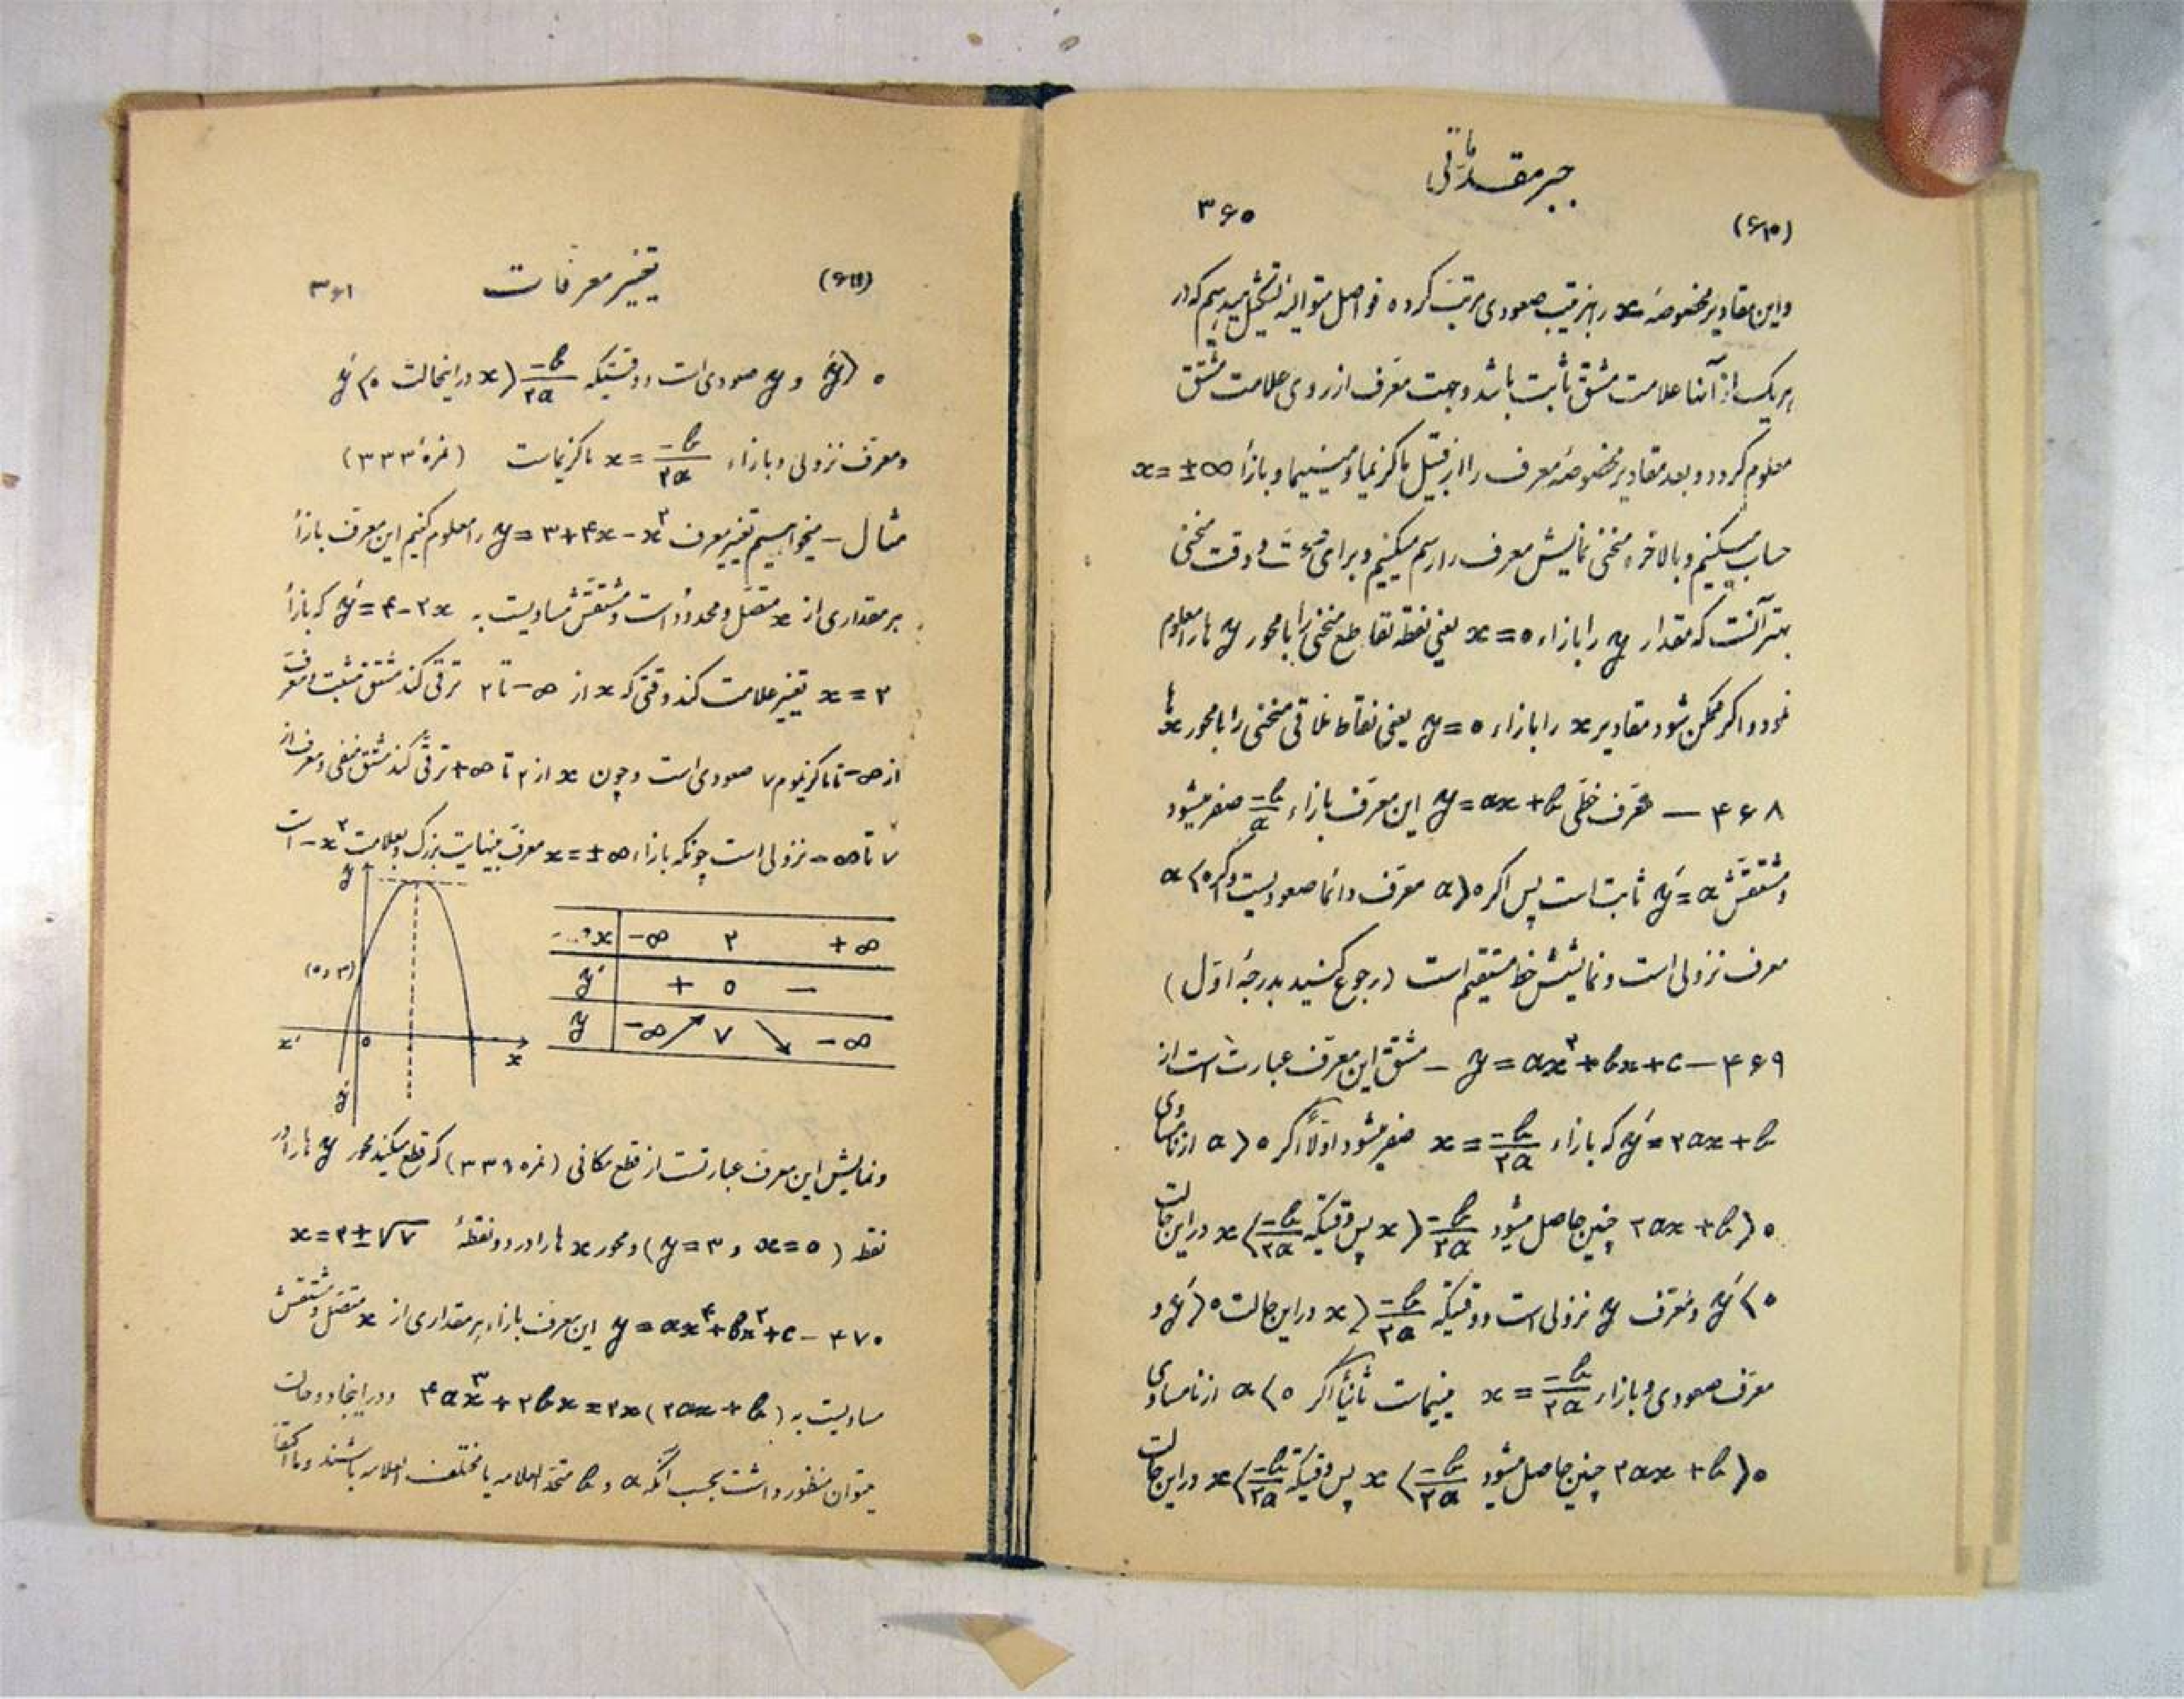 جبر مقدماتی
(۶۱۰) ۳۶۰
و این مقادیر مخصوصهٔ x را بترتیب صعودی مرتب کرده فواصل متوالیه تشکیل میدهیم که در
هر یک از آنها علامت مشتق ثابت باشد و جهت معرف از روی علامت مشتق
معلوم گردد و بعد مقادیر مخصوصهٔ معرف را از قبیل ماکزیما و مینیما و بازاء x = ±∞
حساب میکنیم و بالاخره منحنی نمایش معرف را رسم میکنیم و برای صحت و دقت منحنی
بهتر آنست که مقدار y را بازاء x = ۰ یعنی نقطه تقاطع منحنی را با محور y ها معلوم
نمود و اگر ممکن شود مقادیر x را بازاء y = ۰ یعنی نقاط تلاقی منحنی را با محور x ها
۴۶۸ — معرف خطی y = ax + b این معرف بازاء -b/a صفر میشود
و مشتقش y' = a ثابت است پس اگر a > ۰ معرف دائما صعودیست و اگر a < ۰
معرف نزولی است و نمایشش خط مستقیم است (رجوع کنید بدرجهٔ اول)
۴۶۹ — y = ax² + bx + c — مشتق این معرف عبارت است از
y' = ۲ax + b که بازاء x = -b/۲a صفر میشود اولاً اگر a > ۰ از نامساوی
۲ax + b > ۰ چنین حاصل میشود x > -b/۲a پس وقتیکه x < -b/۲a در این حالت
y' < ۰ و معرف y نزولی است و وقتیکه x > -b/۲a در این حالت y' > ۰ و
معرف صعودی و بازاء x = -b/۲a مینیماست ثانیاً اگر a < ۰ از نامساوی
۲ax + b > ۰ چنین حاصل میشود x < -b/۲a پس وقتیکه x < -b/۲a در این حالت
(۶۱۱) تغییر معرفات ۳۶۱
y' > ۰ و y صعودی است و وقتیکه x > -b/۲a در اینحالت y' < ۰
و معرف نزولی و بازاء x = -b/۲a ماکزیماست (نمره ۳۳۳)
مثال — میخواهیم تغییر معرف y = ۳ + ۴x - x² را معلوم کنیم این معرف بازاء
هر مقداری از x متصل و محدود است و مشتقش مساویست به y' = ۴ - ۲x که بازاء
x = ۲ تغییر علامت کند وقتی که x از -∞ تا ۲ ترقی کند مشتق مثبت و معرف
از -∞ تا ماکزیموم ۷ صعودی است و چون x از ۲ تا +∞ ترقی کند مشتق منفی و معرف از
۷ تا -∞ نزولی است چونکه بازاء x = ±∞ معرف بینهایت بزرگ و بعلامت -x² است
x -∞ ۲ +∞
y' + ۰ —
y -∞ ↗ ۷ ↘ -∞
y
(۰,۳)
x' ۰ x
y'
و نمایش این معرف عبارتست از قطع مکافی (نمره ۳۳۶) که قطع میکند محور y ها را در
نقطه (x = ۰ و y = ۳) و محور x ها را در دو نقطهٔ x = ۲ ± √۷
۴۷۰ — y = ax⁴ + bx² + c این معرف بازاء هر مقداری از x متصل و مشتقش
مساویست به ۴ax³ + ۲bx = ۲x(۲ax + b) و در اینجا دو حالت
میتوان منظور داشت بحسب آنکه a و b متحد العلامه یا مختلف العلامه باشند